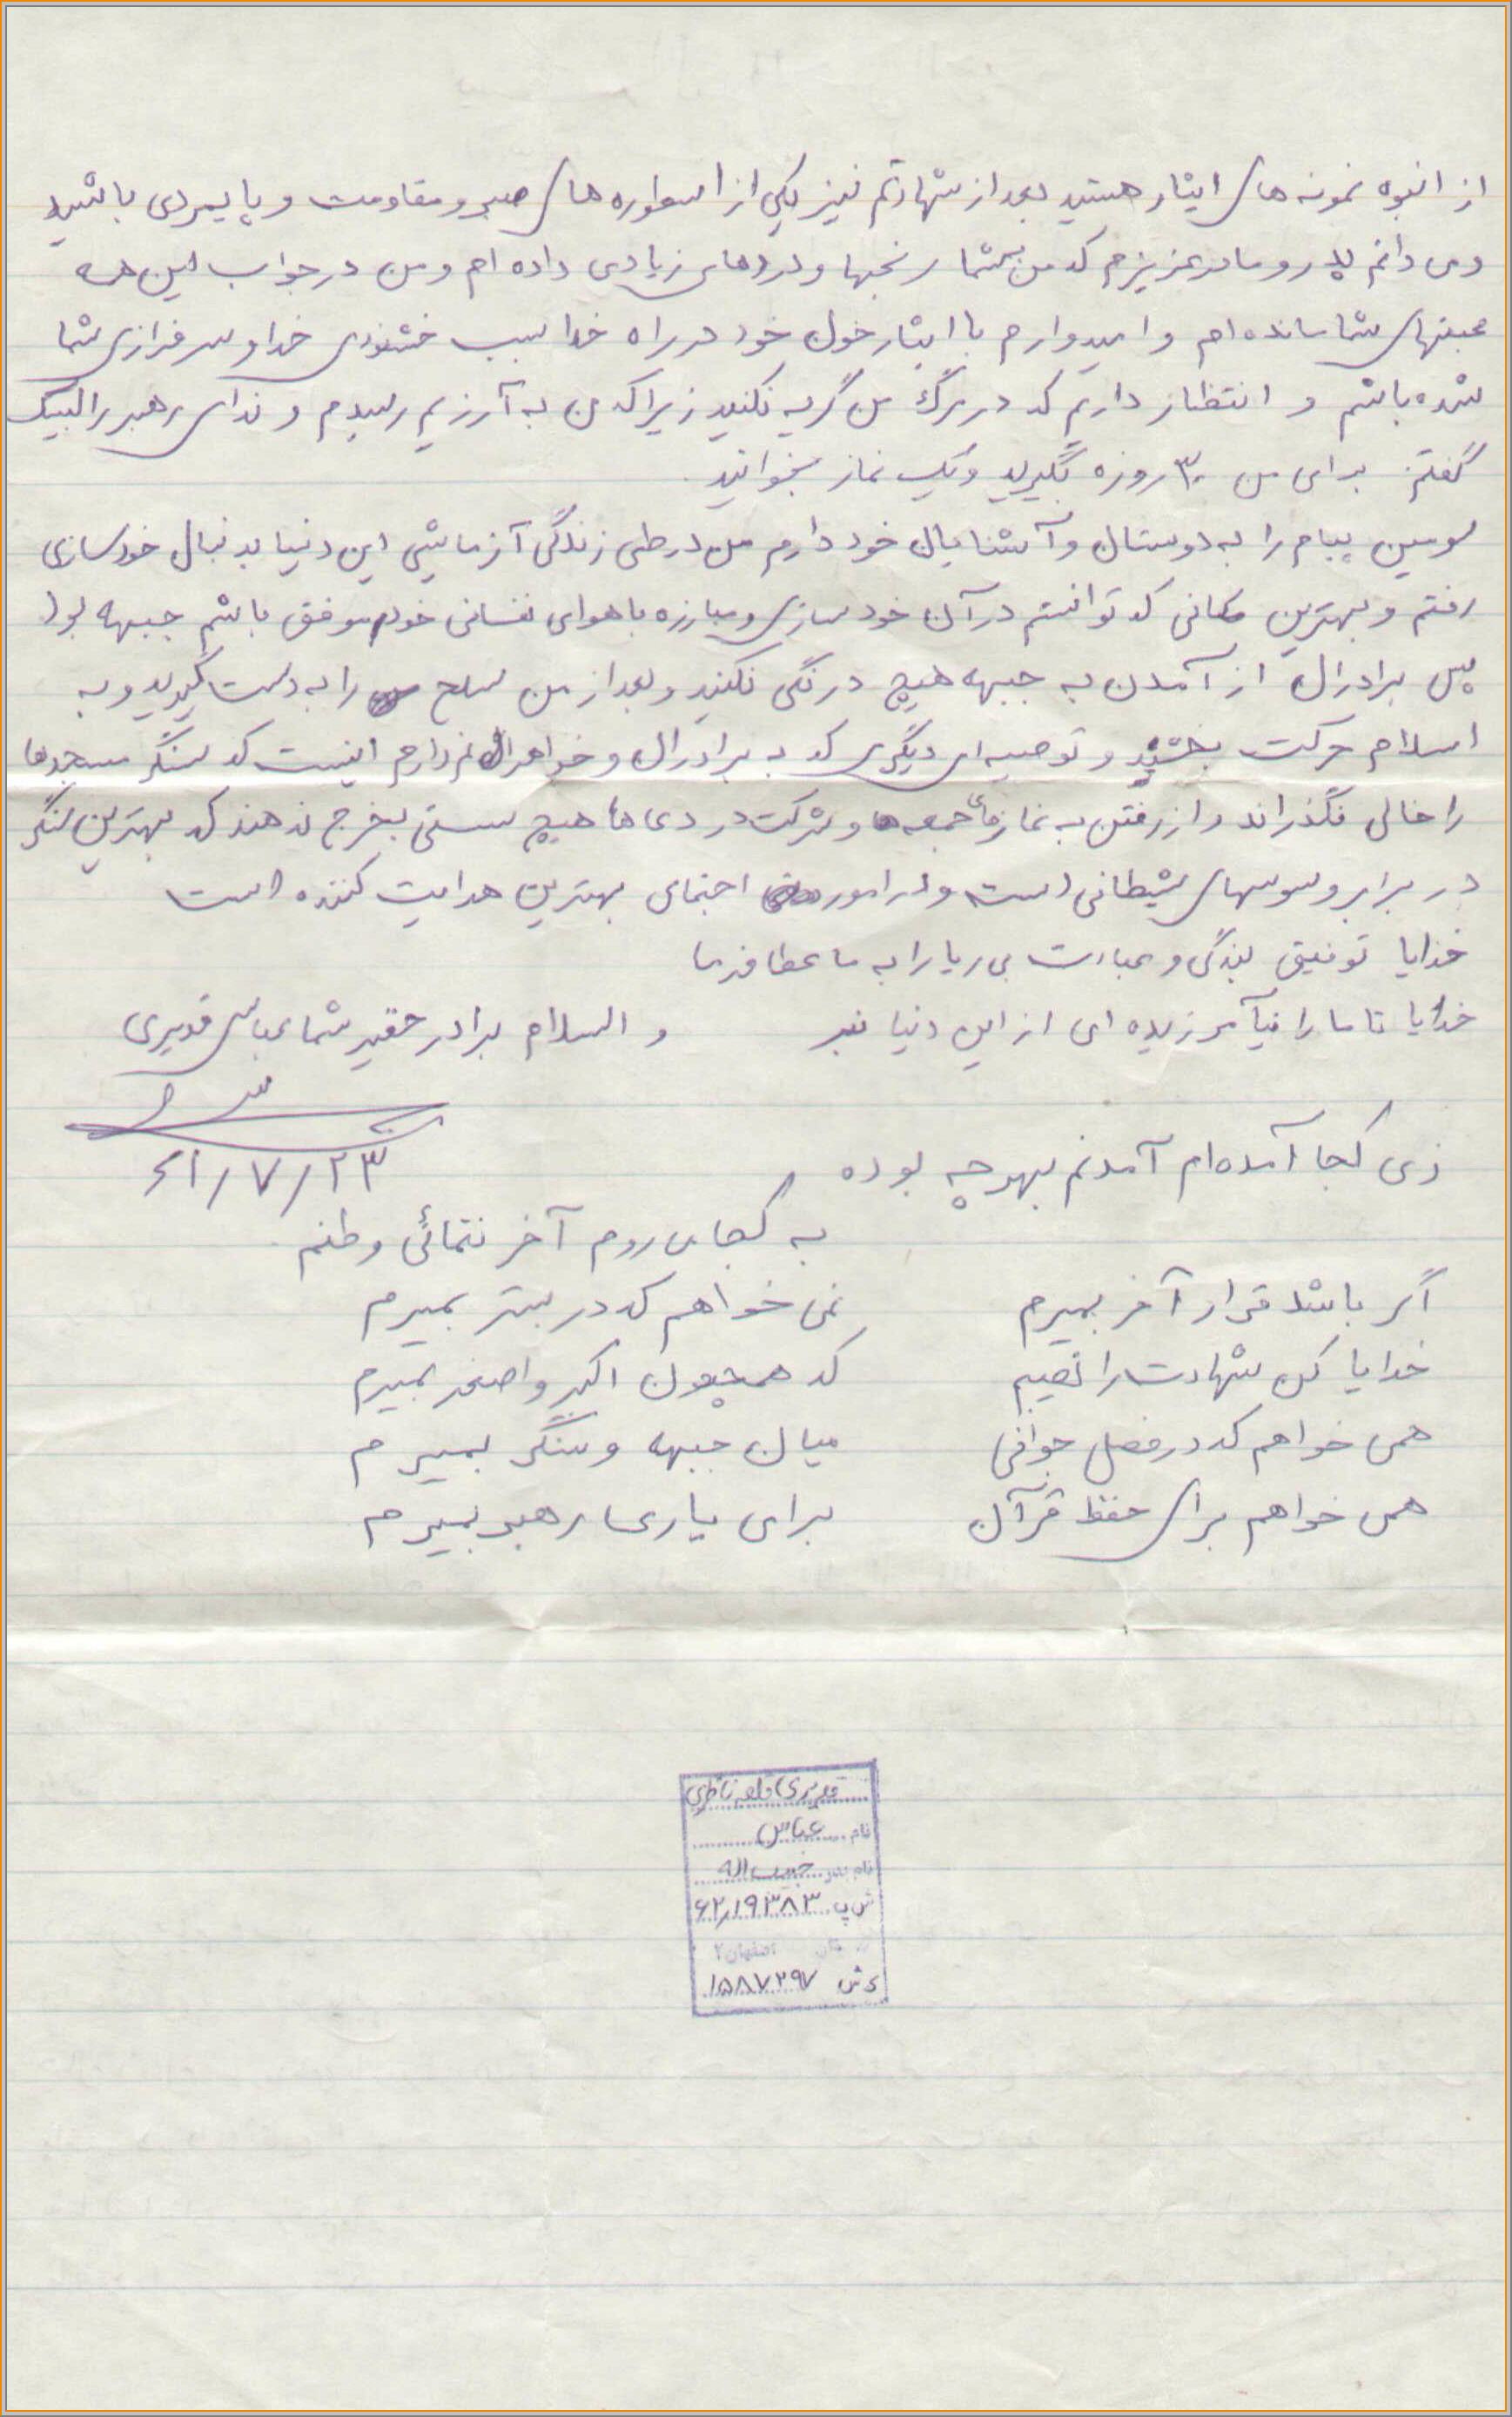 از انبوه نمونه های ایثار هستید بعد از شهادتم نیز یکی از اسطوره های صبر و مقاومت و پایمردی باشید
می دانم پدر و مادر عزیزم که من بشما رنجها و دردهای زیادی داده ام و من در جواب این همه
محبتهای شما مانده ام و امیدوارم با ایثار خون خود در راه خدا سبب خشنودی خدا و سرفرازی شما
شده باشم و انتظار داریم که در مرگ من گریه نکنید زیرا که من به آرزیم رسیدم و ندای رهبر را لبیک
گفتم برای من ۳۰ روزه بگیرید و یک نماز بخوانید.
سومین پیام را به دوستان و آشنایان خود دارم من در طی زندگی آزمایشی این دنیا بدنبال خودسازی
رفتم و بهترین مکانی که توانستم در آن خودسازی و مبارزه با هوای نفسانی خود موفق باشم جبهه بود
پس برادران از آمدن به جبهه هیچ درنگی نکنید و بعد از من سلح را به دست گیرید و به
اسلام حرکت بخشید و توصیه ای دیگری که به برادران و خواهرانم دارم اینست که سنگر مسجدها
را خالی نگذراند و از رفتن به نمازهای جمعه و شرکت در دعاها هیچ سستی بخرج ندهند که بهترین سنگر
در برابر وسوسهای شیطانی است و در امور اجتماعی بهترین هدایت کننده است
خدایا توفیق بندگی و عبادت بی ریا را به ما عطا فرما
خدایا تا ما را نیآمرزیده ای از این دنیا نبر و السلام برادر حقیر شما عباس قدیری
۶۱/۷/۲۳
زی کجا آمده ام آمدنم بهر چه بوده
به کجا می روم آخر ننمائی وطنم
اگر باشد قرار آخر بمیرم نمی خواهم که در بستر بمیرم
خدایا کن شهادت را نصیبم که همچون اکبر و اصغر بمیرم
همی خواهم که در فصل جوانی میان جبهه و سنگر بمیرم
همی خواهم برای حفظ قرآن برای یاری رهبر بمیرم
قدیری قلعه ناظری
نام عباس
نام پدر حبیب اله
ش پ ۶۲٫۱۹۳۸۳
اصفهان ۲
ک ش ۱۵۸۷۲۹۷